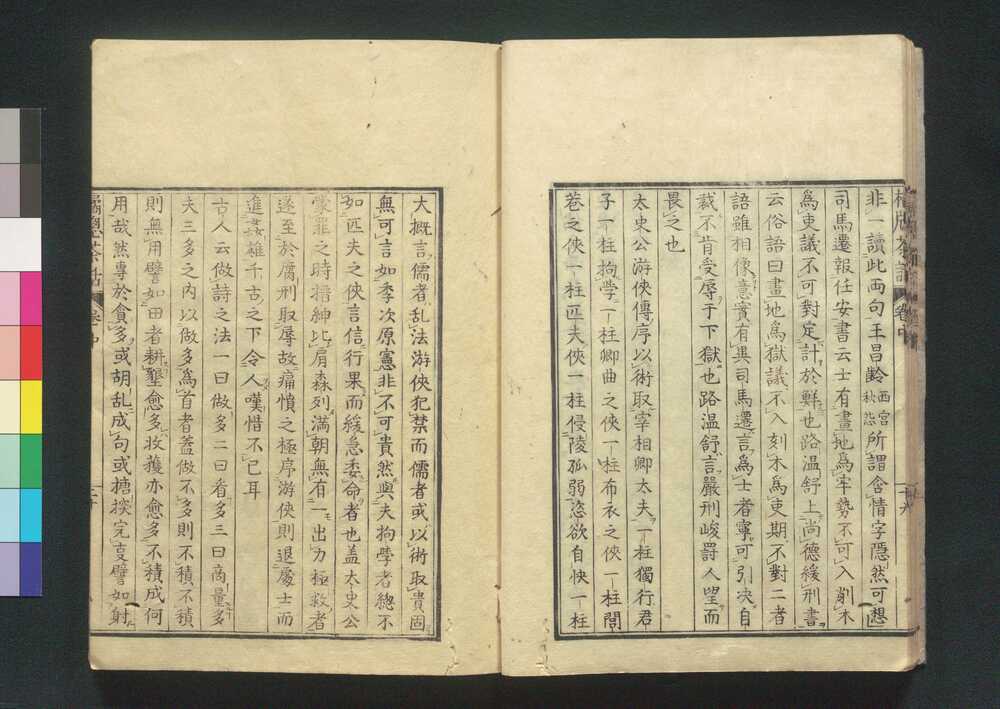 梧窓茶話 卷中
非一讀此兩句王昌齡西宮秋怨所謂含情字隱然可想
司馬遷報任安書云士有畫地爲牢勢不可入削木
爲吏議不可對定計於鮮也路溫舒上尚德緩刑書
云俗語曰畫地爲獄議不入刻木爲吏期不對二者
語雖相像意實有異司馬遷言爲士者寧可引決自
裁不肯受辱于下獄也路溫舒言嚴刑峻罰人望而
畏之也
太史公游俠傳序以術取宰相卿大夫一柱獨行君
子一柱拘學一柱鄉曲之俠一柱布衣之俠一柱閭
巷之俠一柱匹夫俠一柱侵陵孤弱恣欲自快一柱
大概言儒者亂法游俠犯禁而儒者或以術取貴固
無可言如季次原憲非不可貴然與夫拘學者總不
如匹夫之俠言信行果而緩急委命者也蓋太史公
蒙罪之時搢紳比肩森列滿朝無有一出力極救者
遂至於腐刑取辱故痛憤之極序游俠則退處士而
進姦雄千古之下令人嘆惜不已耳
古人云做詩之法一曰做多二曰看多三曰商量多
夫三多之內以做多爲首者蓋做不多則不積不積
則無用譬如田者耕墾愈多收獲亦愈多不積成何
用哉然專於貪多或胡亂成句或搪揬完篇譬如射
梧窓茶話 卷中